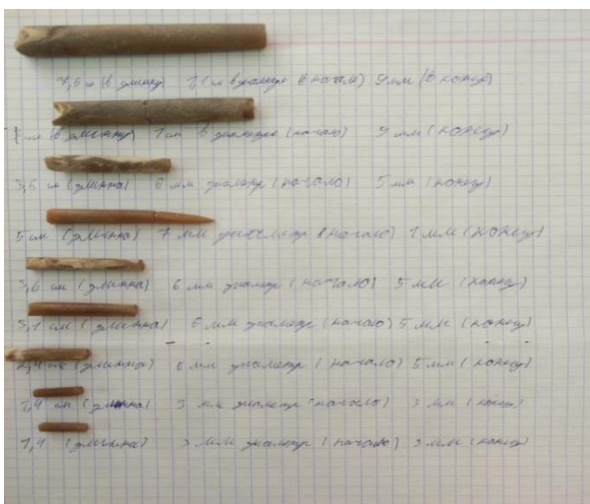 7,6 см (в длину) 1,1 см в диаметре (начало) 9 мм (в конце)
см (в длинну) 1 см в диаметре (начало) 9 мм (конец)
3,6 см (длинна) 6 мм диаметр (начало) 5 мм (конец)
5 см (длинна) 7 мм диаметр (начало) 1 мм (конец)
3,6 см (длинна) 6 мм диаметр (начало) 5 мм (конец)
3,1 см (длинна) 6 мм диаметр (начало) 5 мм (конец)
2,4 см (длинна) 6 мм диаметр (начало) 5 мм (конец)
1,4 см (длинна) 3 мм диаметр (начало) 3 мм (конец)
1,4 (длинна) 3 мм диаметр (начало) 3 мм (конец)